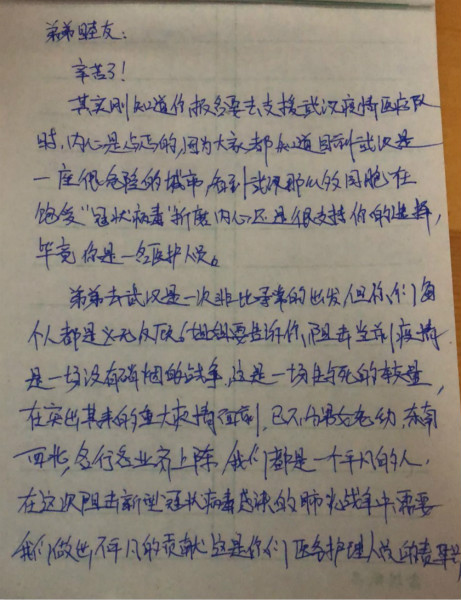 弟弟睦友:
辛苦了!
其实刚知道你报名要去支援武汉疫情医疗队
时,内心是忐忑的,因为大家都知道目前武汉是
一座很危险的城市,看到武汉那么多同胞在
饱受“冠状病毒”折磨内心还是很支持你的选择,
毕竟你是一名医护人员。
弟弟去武汉是一次非比寻常的出发,但你们每
个人都是义无反顾,姐姐要告诉你,阻击当前疫情
是一场没有硝烟的战争,这是一场生与死的较量,
在突出其来的重大疫情面前,已不分男女老幼,东南
西北,各行各业齐上阵,我们都是一个平凡的人.
在这次阻击新型冠状病毒感染的肺炎战争中,需要
我们做出不平凡的贡献,这是你们医务护理人员的责